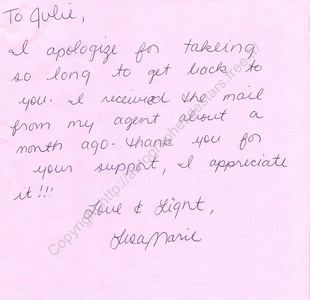 To Julie,
I apologize for takeing
so long to get back to
you. I received the mail
from my agent about a
month ago. Thank you for
your support, I appreciate
it!!!
Love & Light,
LisaMarie